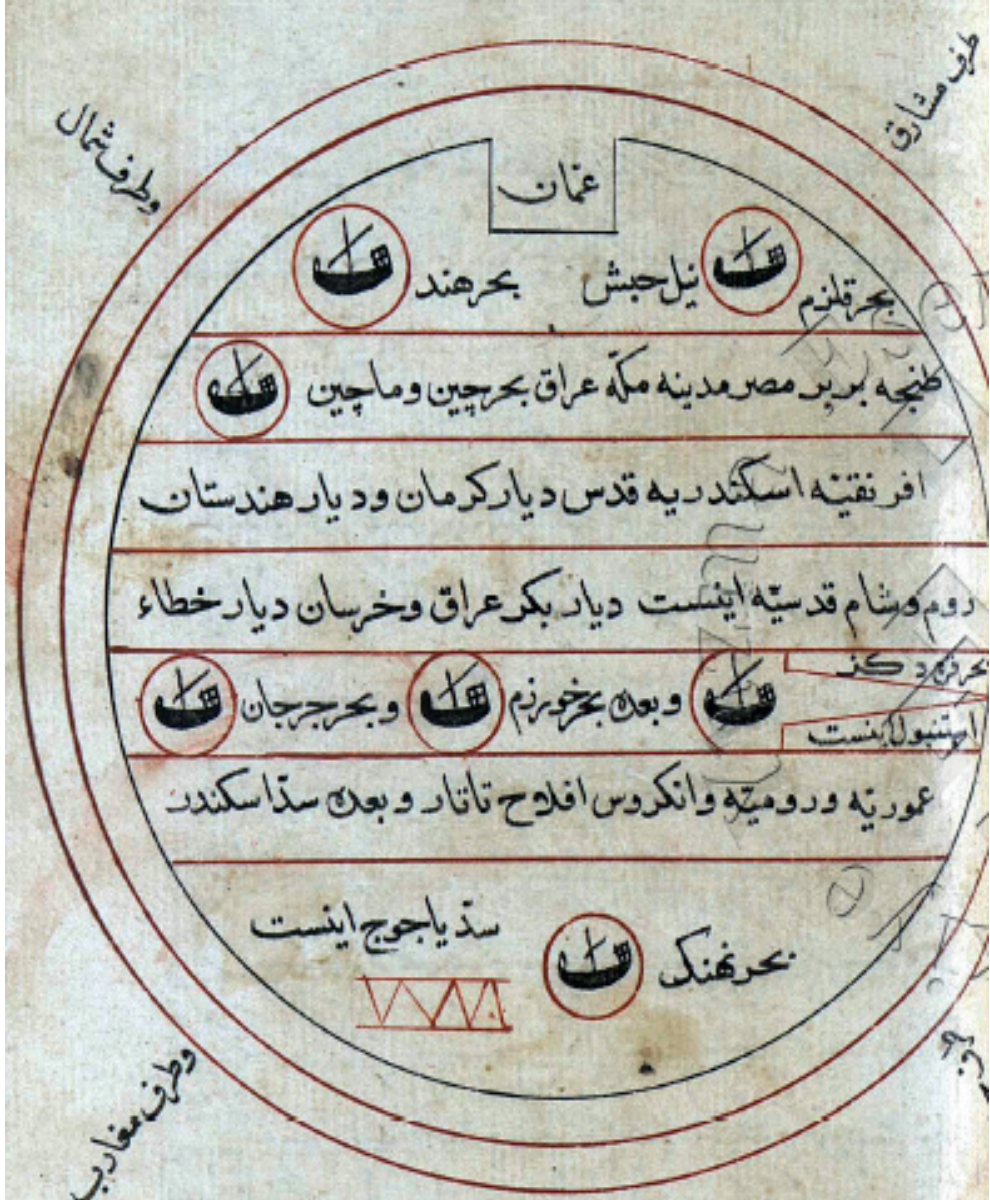 طرف مشارق
وطرف شمال
عمان
بحر قلزم نیل حبش بحر هند
طنجه بربر مصر مدینه مکّه عراق بحر چین وماچین
افرنقینه اسکندریه قدس دیار کرمان ودیار هندستان
روم وشام قدسیّه اینست دیار بکر عراق وخرسان دیار خطاء
بحر قره دکز
استنبول اینست
وبعده بحر خورزم وبحر جرجان
عموریّه ورومیّه وانکروس افلاح تاتار وبعده سدّ اسکندر
بحر نهنک
سدّ یاجوج اینست
وطرف مغارب